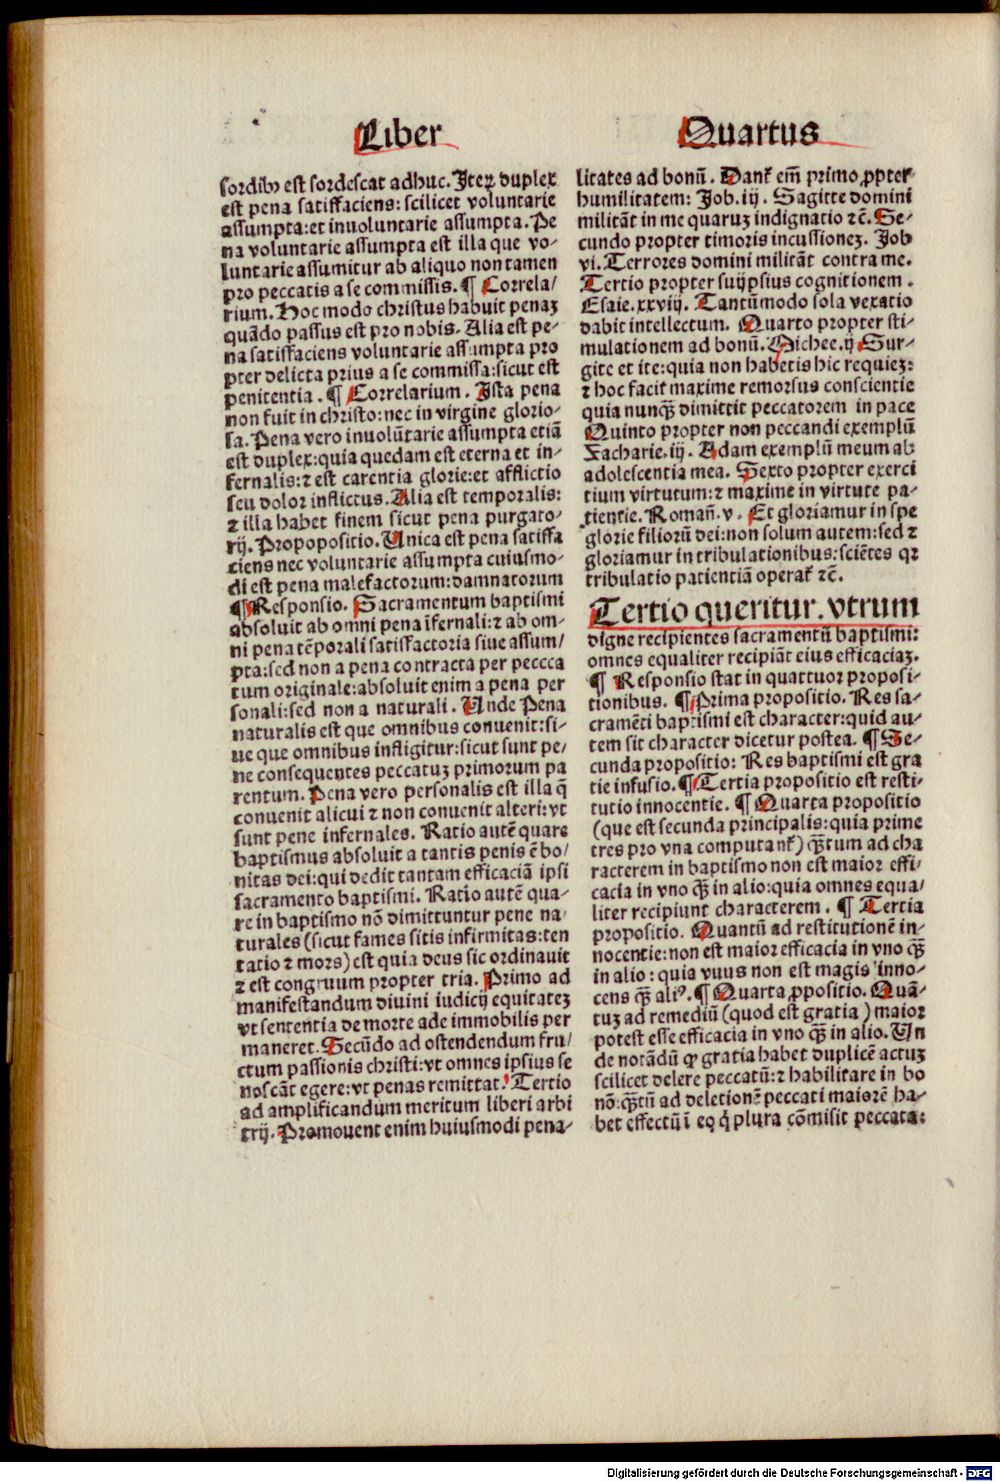 Liber
Quartus
sordibꝰ est sordescat adhuc. Iteꝝ duplex
est pena satisfaciens: scilicet voluntarie
assumpta: et inuoluntarie assumpta. Pe
na voluntarie assumpta est illa que vo-
luntarie assumitur ab aliquo non tamen
pro peccatis a se commissis. ¶ Correla/
rium. Hoc modo christus habuit penaꝫ
quādo passus est pro nobis. Alia est pe-
na satisfaciens voluntarie assumpta pro
pter delicta prius a se commissa: sicut est
penitentia. ¶ Correlarium. Ista pena
non fuit in christo: nec in virgine glorio-
sa. Pena vero inuolūtarie assumpta etiā
est duplex: quia quedam est eterna et in-
fernalis: ⁊ est carentia glorie: et afflictio
seu dolor inflictus. Alia est temporalis:
⁊ illa habet finem sicut pena purgato-
rij. Propopositio. Unica est pena satisfa
ciens nec voluntarie assumpta cuiusmo-
di est pena malefactorum: damnatorum
¶ Responsio. Sacramentum baptismi
absoluit ab omni pena īfernali: ⁊ ab om-
ni pena tēporali satisfactoria siue assum/
pta: sed non a pena contracta per peccca
tum originale: absoluit enim a pena per
sonali: sed non a naturali. Unde Pena
naturalis est que omnibus conuenit: si-
ue que omnibus infligitur: sicut sunt pe/
ne consequentes peccatuꝫ primorum pa
rentum. Pena vero personalis est illa q̄
conuenit alicui ⁊ non conuenit alteri: vt
sunt pene infernales. Ratio autē quare
baptismus absoluit a tantis penis ē bo/
nitas dei: qui dedit tantam efficaciā ipsi
sacramento baptismi. Ratio autē qua-
re in baptismo nō dimittuntur pene na/
turales (sicut fames sitis infirmitas: ten
tatio ⁊ mors) est quia deus sic ordinauit
⁊ est congruum propter tria. Primo ad
manifestandum diuini iudicij equitateꝫ
vt sententia de morte ade immobilis per
maneret. Secūdo ad ostendendum fru/
ctum passionis christi: vt omnes ipsius se
noscāt egere: vt penas remittat. Tertio
ad amplificandum meritum liberi arbi
trij. Promouent enim huiusmodi pena-
litates ad bonū. Dant̄ em̄ primo ꝓpter
humilitatem: Job. iij. Sagitte domini
militāt in me quaruꝫ indignatio ⁊c̄. Se-
cundo propter timoris incussioneꝫ. Job
vi. Terrores domini militāt contra me.
Tertio propter suijpsius cognitionem.
Esaie. xxviij. Tantūmodo sola vexatio
dabit intellectum. Quarto propter sti-
mulationem ad bonū. Michee. ij Sur-
gite et ite: quia non habetis hic requieꝫ:
⁊ hoc facit maxime remorsus conscientie
quia nunqꝫ̄ dimittit peccatorem in pace
Quinto propter non peccandi exemplū
Zacharie. ij. Adam exemplū meum ab
adolescentia mea. Sexto propter exerci
tium virtutum: ⁊ maxime in virtute pa-
tientie. Romañ. v. Et gloriamur in spe
glorie filiorū dei: non solum autem: sed ⁊
gloriamur in tribulationibus: sciētes qꝛ
tribulatio patientiā operat̄ ⁊c̄.
Tertio queritur. vtrum
digne recipientes sacramentū baptismi:
omnes equaliter recipiāt eius efficaciaꝫ.
¶ Responsio stat in quattuor proposi-
tionibus. ¶ Prima propositio. Res sa-
cramēti baptismi est character: quid au-
tem sit character dicetur postea. ¶ Se-
cunda propositio: Res baptismi est gra
tie infusio. ¶ Tertia propositio est resti-
tutio innocentie. ¶ Quarta propositio
(que est secunda principalis: quia prime
tres pro vna computant̄) qꝫ̄tum ad cha
racterem in baptismo non est maior effi-
cacia in vno qꝫ̄ in alio: quia omnes equa/
liter recipiunt characterem. ¶ Tertia
propositio. Quantū ad restitutionē in-
nocentie: non est maior efficacia in vno qꝫ̄
in alio: quia vuus non est magis inno-
cens qꝫ̄ aliꝰ. ¶ Quarta ꝓpositio. Quā-
tuꝫ ad remediū (quod est gratia) maior
potest esse efficacia in vno qꝫ̄ in alio. Un
de notādū ꝙ gratia habet duplicē actuꝫ
scilicet delere peccatū: ⁊ habilitare in bo
nō: qꝫ̄tū ad deletionē peccati maiorē ha-
bet effectū ī eo q̇ plura cōmisit peccata:
Digitalisierung gefördert durch die Deutsche Forschungsgemeinschaft - DFG